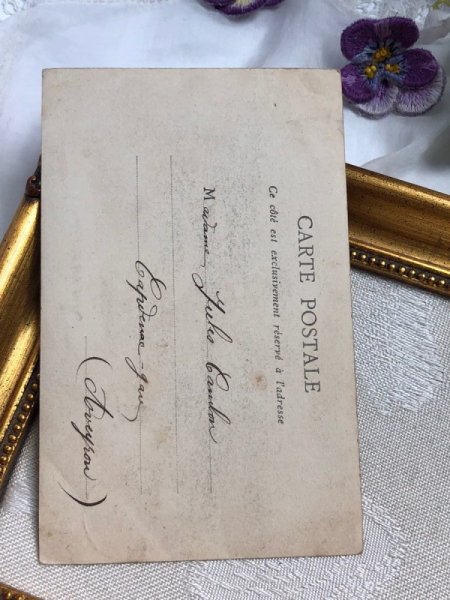 CARTE POSTALE
Ce côté est exclusivement réservé à l'adresse
Madame Jules Caulon
Capdenac gare
(Aveyron)